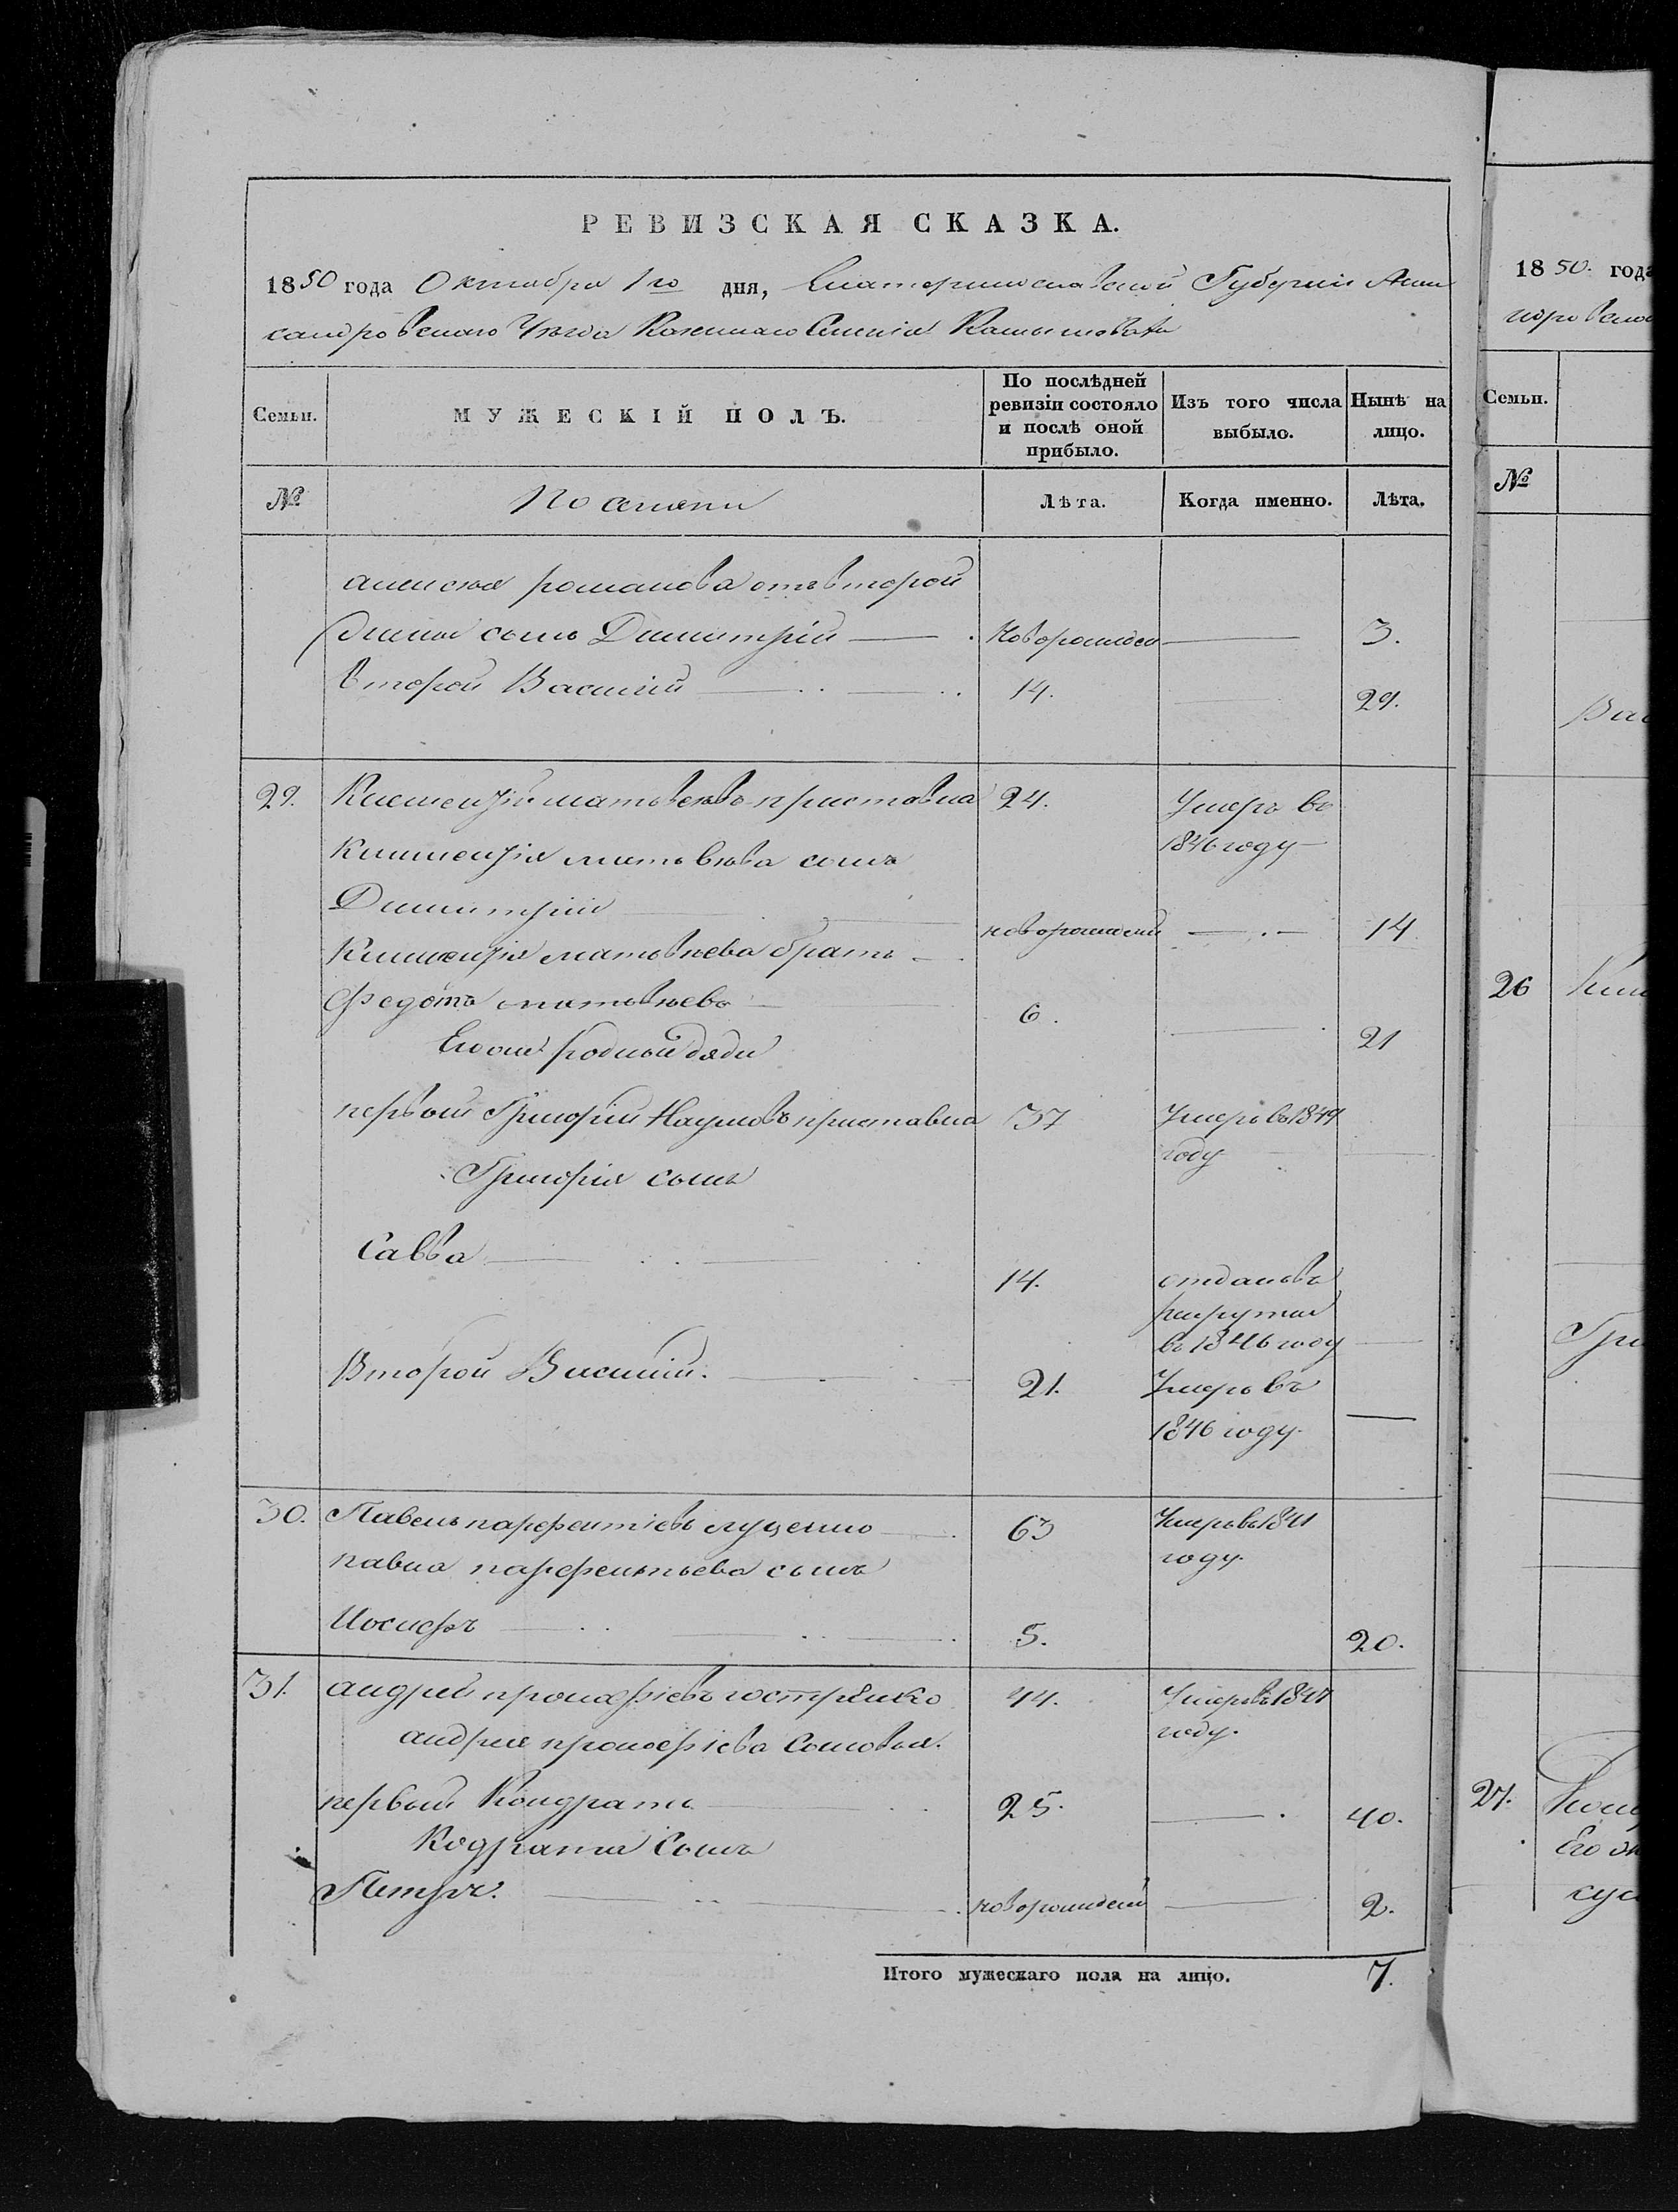 РЕВИЗСКАЯ СКАЗКА.
1850 года Октября 1го дня, Екатеринославской Губернии Алек
сандровскаго Уезда Казеннаго Селенія
Семьи. МУЖЕСКІЙ ПОЛЪ. По послѣдней ревизіи состояло и послѣ оной прибыло. Изъ того числа выбыло. Нынѣ на лицо.
№ Лѣта. Когда именно. Лѣта.
алексея романова отъ второй
жены сынъ Димитрій новорожден 3.
второй Василій 14. 29.
29. Климентій матвеевъ приставка 24. Умеръ въ
климентія матвѣева сынъ 1846 году
Димитрій новорожденый 14
Климентія матвѣева братъ
Федотъ матвѣевъ 6. 21
Его родные дяди
первый Григорій Наумовъ приставка 37 Умеръ въ 1849
Григорія сынъ году
Савва 14. отданъ въ
рекруты
въ 1846 году
Второй Василій. 21. Умеръ въ
1846 году
30. Павелъ парфентіевъ луценко 63 Умеръ въ 1841
павла парфентьева сынъ году.
Иосифъ 5. 20.
31. андрей прокофіевъ костренко 44. Умеръ въ 1847
андрея прокофіева Сыновья. году.
первый Кондратъ 25. 40.
Кодрата Сынъ
Петръ. новорожденый 2.
Итого мужескаго пола на лицо. 7.
1850. года
Семьи.
№
26
27.
Его